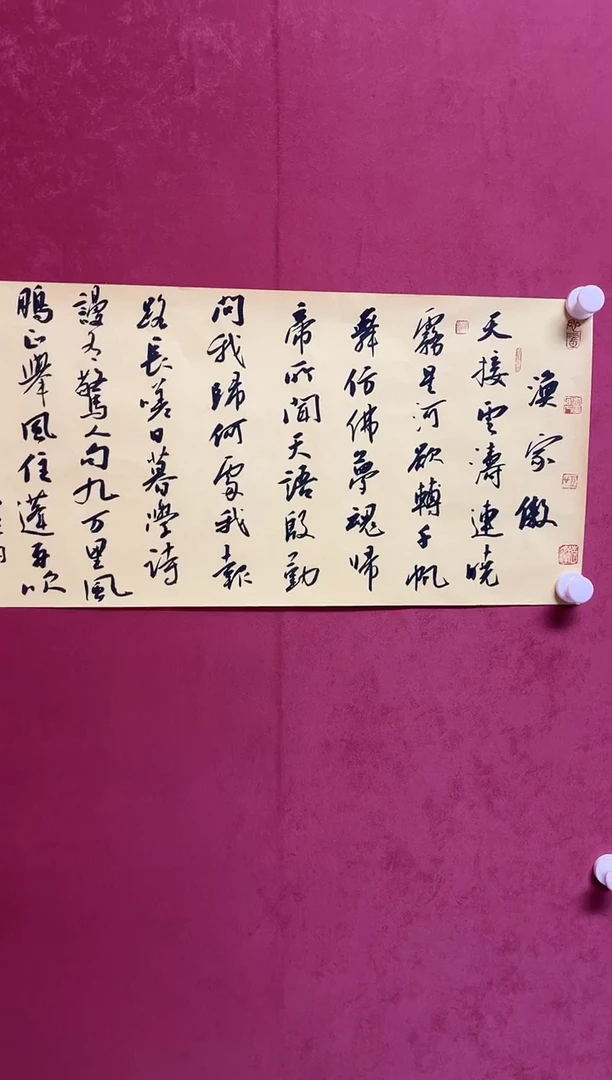 漁家傲
天接雲濤連曉
霧星河欲轉千帆
舞仿佛夢魂歸
帝所聞天語殷勤
問我歸何處我報
路長嗟日暮學詩
謾有驚人句九万里風
鵬正舉風住蓬舟吹